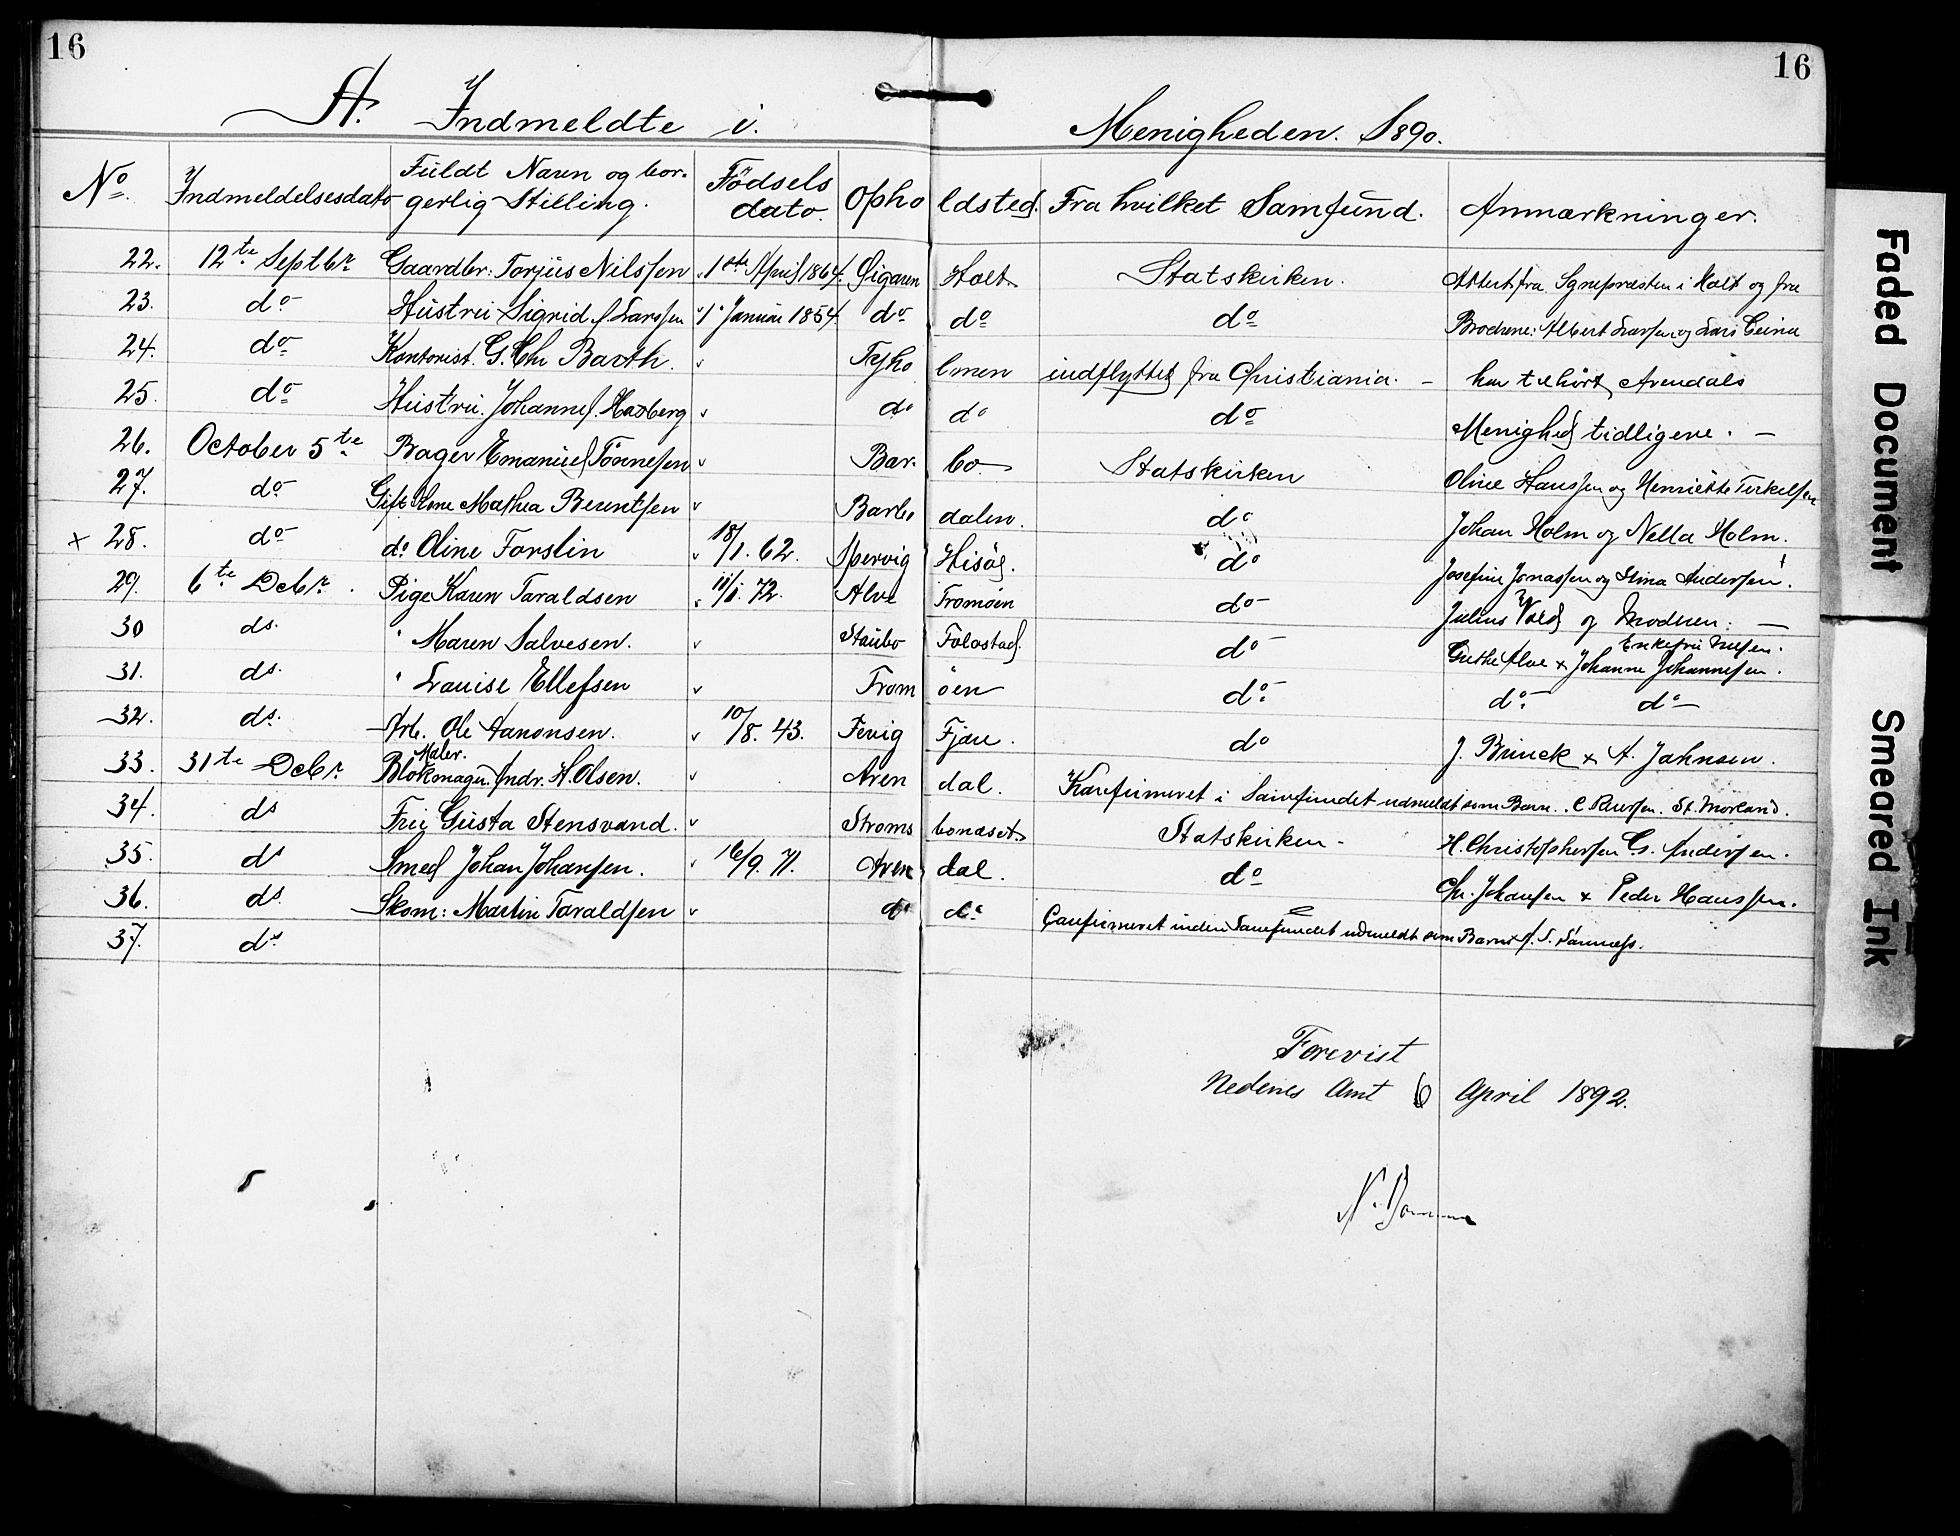 16 16
A. Indmeldte i. Menigheden. 1890.
No. Indmeldelsesdato Fuldt Navn og borgerlig Stilling. Födsels dato. Opholdsted. Fra hvilket Samfund. Anmærkninger.
22. 12te Septbr Gaardbr: Torjus Nilssen 1ste April 1864. Holt Statskirken. Attest fra Sognepræsten i Holt og fra
23. do Hustru Sigrid f. Larssen 1 Januar 1854 do do do Brødrene: Albert Larssen og Lars
24. do Kontorist. G. Chr Barth. Tyholmen indflyttet fra Christiania. – har tilhört Arendals
25. do Hustru. Johanne f. Haxberg do do do Menighed tidligere. –
26. October 5te Bager Emanuel Tönnesen Barbo Statskirken Oline Hanssen og Henriette Terkelsen
27. do Gift Kone Mathea Berentsen Barbodalen. do Johan Holm og Nella Holm.
x 28. do do Oline Forslin 18/1. 62. Spervig Hisöe. do Josefine Jonassen og Stina Andersen.
29. 6te Decbr. Pige Karen Taraldsen 11/1. 72. Alve Tromöen do Julius Vold og Moderen: –
30 ds. " Maren Salvesen. Staubo Folostad. do Enkefru Nilsen. Grethe Alve x Johanne Johannesen.
31. ds. " Louise Ellefsen Tromöen do do do
32. ds. Arb. Ole Aanonsen. 10/8. 43. Fevig Fjære. do J. Brinck x A. Jahnsen.
33. 31te Decbr. Maler. Blokmager. Andr. H. Olsen. Arendal. Konfirmeret i Samfundet udmeldt som Barn. C. St. Morland.
34. ds Fru Gusta Stensvand. Strømsbonæset Statskirken - H. Christophersen G. Andersen.
35. ds Smed Johan Johansen. 16/9. 71. Arendal. do Chr. Johansen x Peder Hanssen.
36. ds. Skom: Martin Taraldsen do do Confirmeret inden Samfundet udmeldt som Barn
37. ds
Forevist
Nedenes Amt 6 April 1892.
Faded Document
Smeared Ink